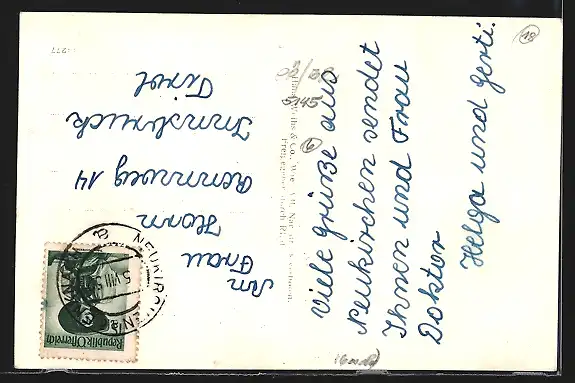 Viele Grüße aus
Neukirchen sendet
Ihnen und Frau
Doktor
Helga und Gerti.
An
Frau
Horn
Rennweg 14
Innsbruck
Tirol
NEUKIRCHEN
5.VIII
Republik Österreich
5145
6
18